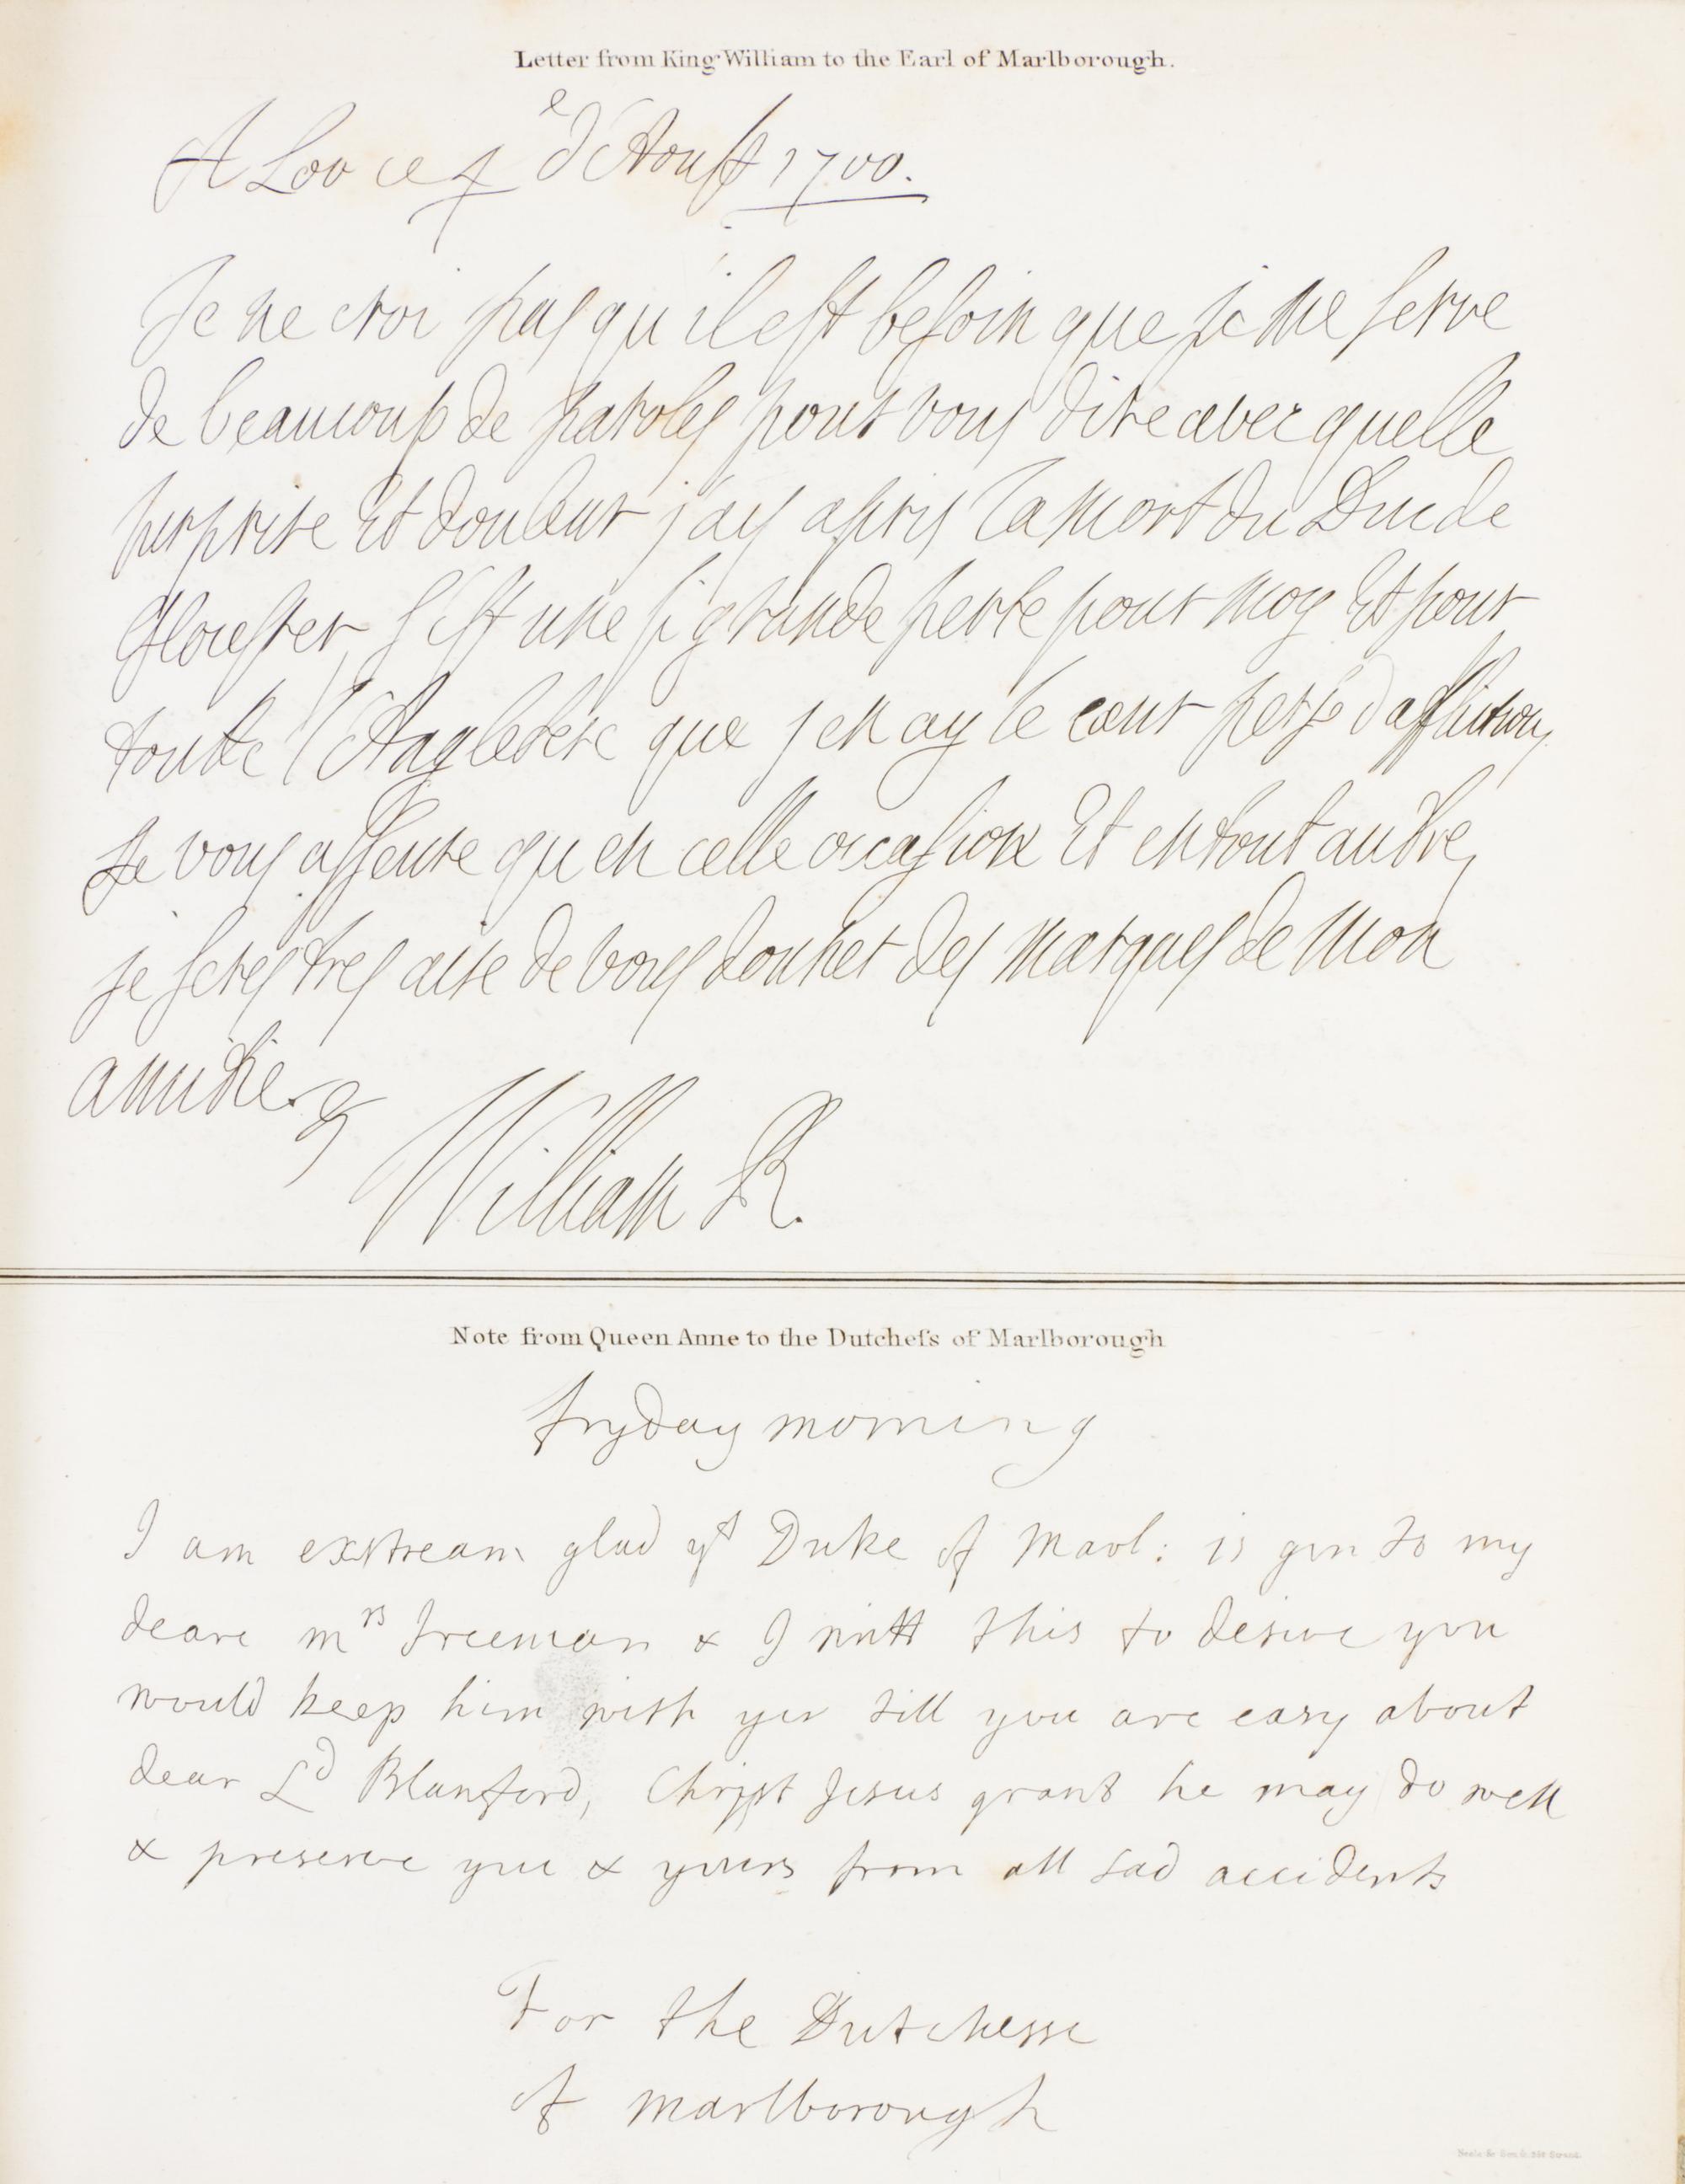 Letter from King William to the Earl of Marlborough.
A Loo ce 4e d'Aoust 1700.
Je ne croi pas qu il est besoin que je me serve
de beaucoup de paroles pour vous dire avec quelle
surprise Et douleur j'ay apris la mort du Duc de
Glouster s'est une si grande perte pour moy Et pour
toutte l'Angletere que j en ay le cœur persé d'affliction,
Je vous asseure qu en celle occasion Et en tout autre,
je seres tres aise de vous donner des marques de mon
amitie.
William R.
Note from Queen Anne to the Dutchefs of Marlborough
fryday morning
I am exstream glad yt Duke of Marl: is gon to my
deare mrs Freeman & I writt this to desire you
would keep him with you till you are easy about
dear Ld Blanford, Christ Jesus grant he may do well
& preserve you & yours from all sad accidents
For the Dutchesse
of Marlborough